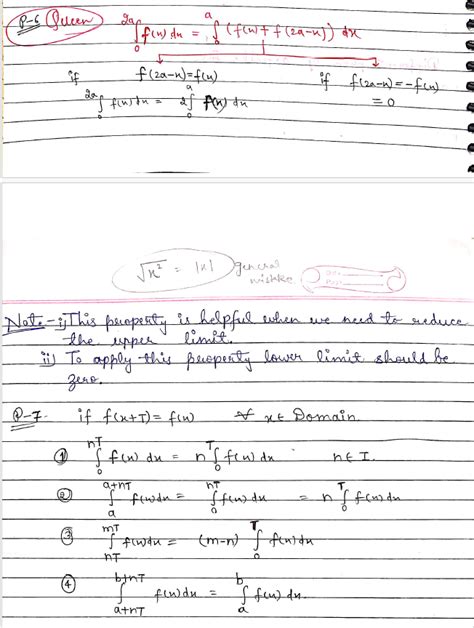 P-6 Queen ∫₀²ᵃ f(x) dx = ∫₀ᵃ (f(x) + f(2a-x)) dx
if f(2a-x) = f(x) if f(2a-x) = -f(x)
∫₀²ᵃ f(x) dx = 2∫₀ᵃ f(x) dx = 0
√x² = |x| general
mistake
Note:- i) This property is helpful when we need to reduce
the upper limit.
ii) To apply this property lower limit should be
zero.
P-7. if f(x+T) = f(x) ∀ x ∈ Domain.
① ∫₀ⁿᵀ f(x) dx = n ∫₀ᵀ f(x) dx n ∈ I.
② ∫ₐᵃ⁺ⁿᵀ f(x) dx = ∫₀ⁿᵀ f(x) dx = n ∫₀ᵀ f(x) dx
③ ∫_{nT}^{mT} f(x) dx = (m-n) ∫₀ᵀ f(x) dx
④ ∫_{a+nT}^{b+nT} f(x) dx = ∫ₐᵇ f(x) dx.